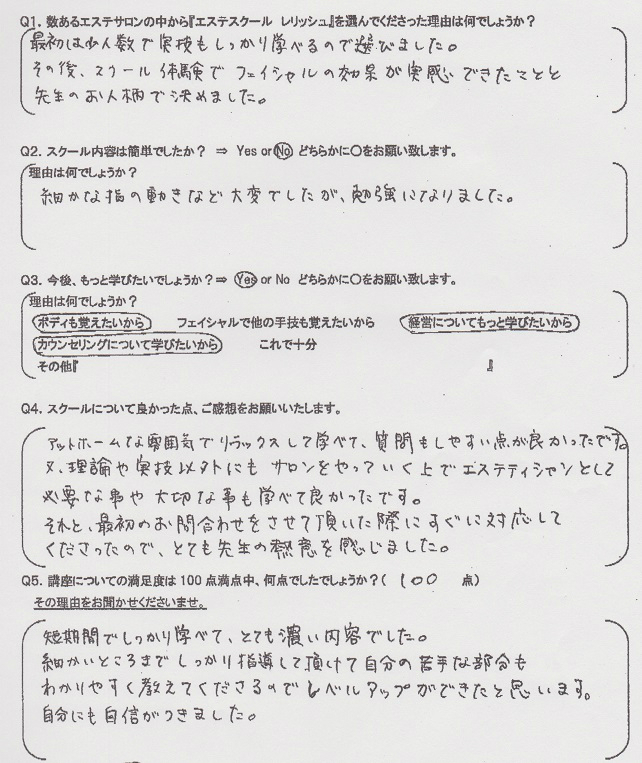 Q1. 数あるエステサロンの中から『エステスクール　レリッシュ』を選んでくださった理由は何でしょうか？
最初は少人数で実技もしっかり学べるので選びました。
その後、スクール体験でフェイシャルの効果が実感できたことと
先生のお人柄で決めました。
Q2. スクール内容は簡単でしたか？　⇒　Yes or No　どちらかに○をお願い致します。
理由は何でしょうか？
細かな指の動きなど大変でしたが、勉強になりました。
Q3. 今後、もっと学びたいでしょうか？⇒　Yes or No　どちらかに○をお願い致します。
理由は何でしょうか？
ボディも覚えたいから　　フェイシャルで他の手技も覚えたいから　　経営についてもっと学びたいから
カウンセリングについて学びたいから　　これで十分
その他『　　　　　　　　　　』
Q4. スクールについて良かった点、ご感想をお願いいたします。
アットホームな雰囲気でリラックスして学べて、質問もしやすい点が良かったです。
又、理論や実技以外にもサロンをやっていく上でエステティシャンとして
必要な事や大切な事も学べて良かったです。
それと、最初のお問合わせをさせて頂いた際にすぐに対応して
くださったので、とても先生の熱意を感じました。
Q5. 講座についての満足度は100点満点中、何点でしたでしょうか？（　100　点）
その理由をお聞かせくださいませ。
短期間でしっかり学べて、とても濃い内容でした。
細かいところまでしっかり指導して頂けて自分の苦手な部分も
わかりやすく教えてくださるのでレベルアップができたと思います。
自分にも自信がつきました。